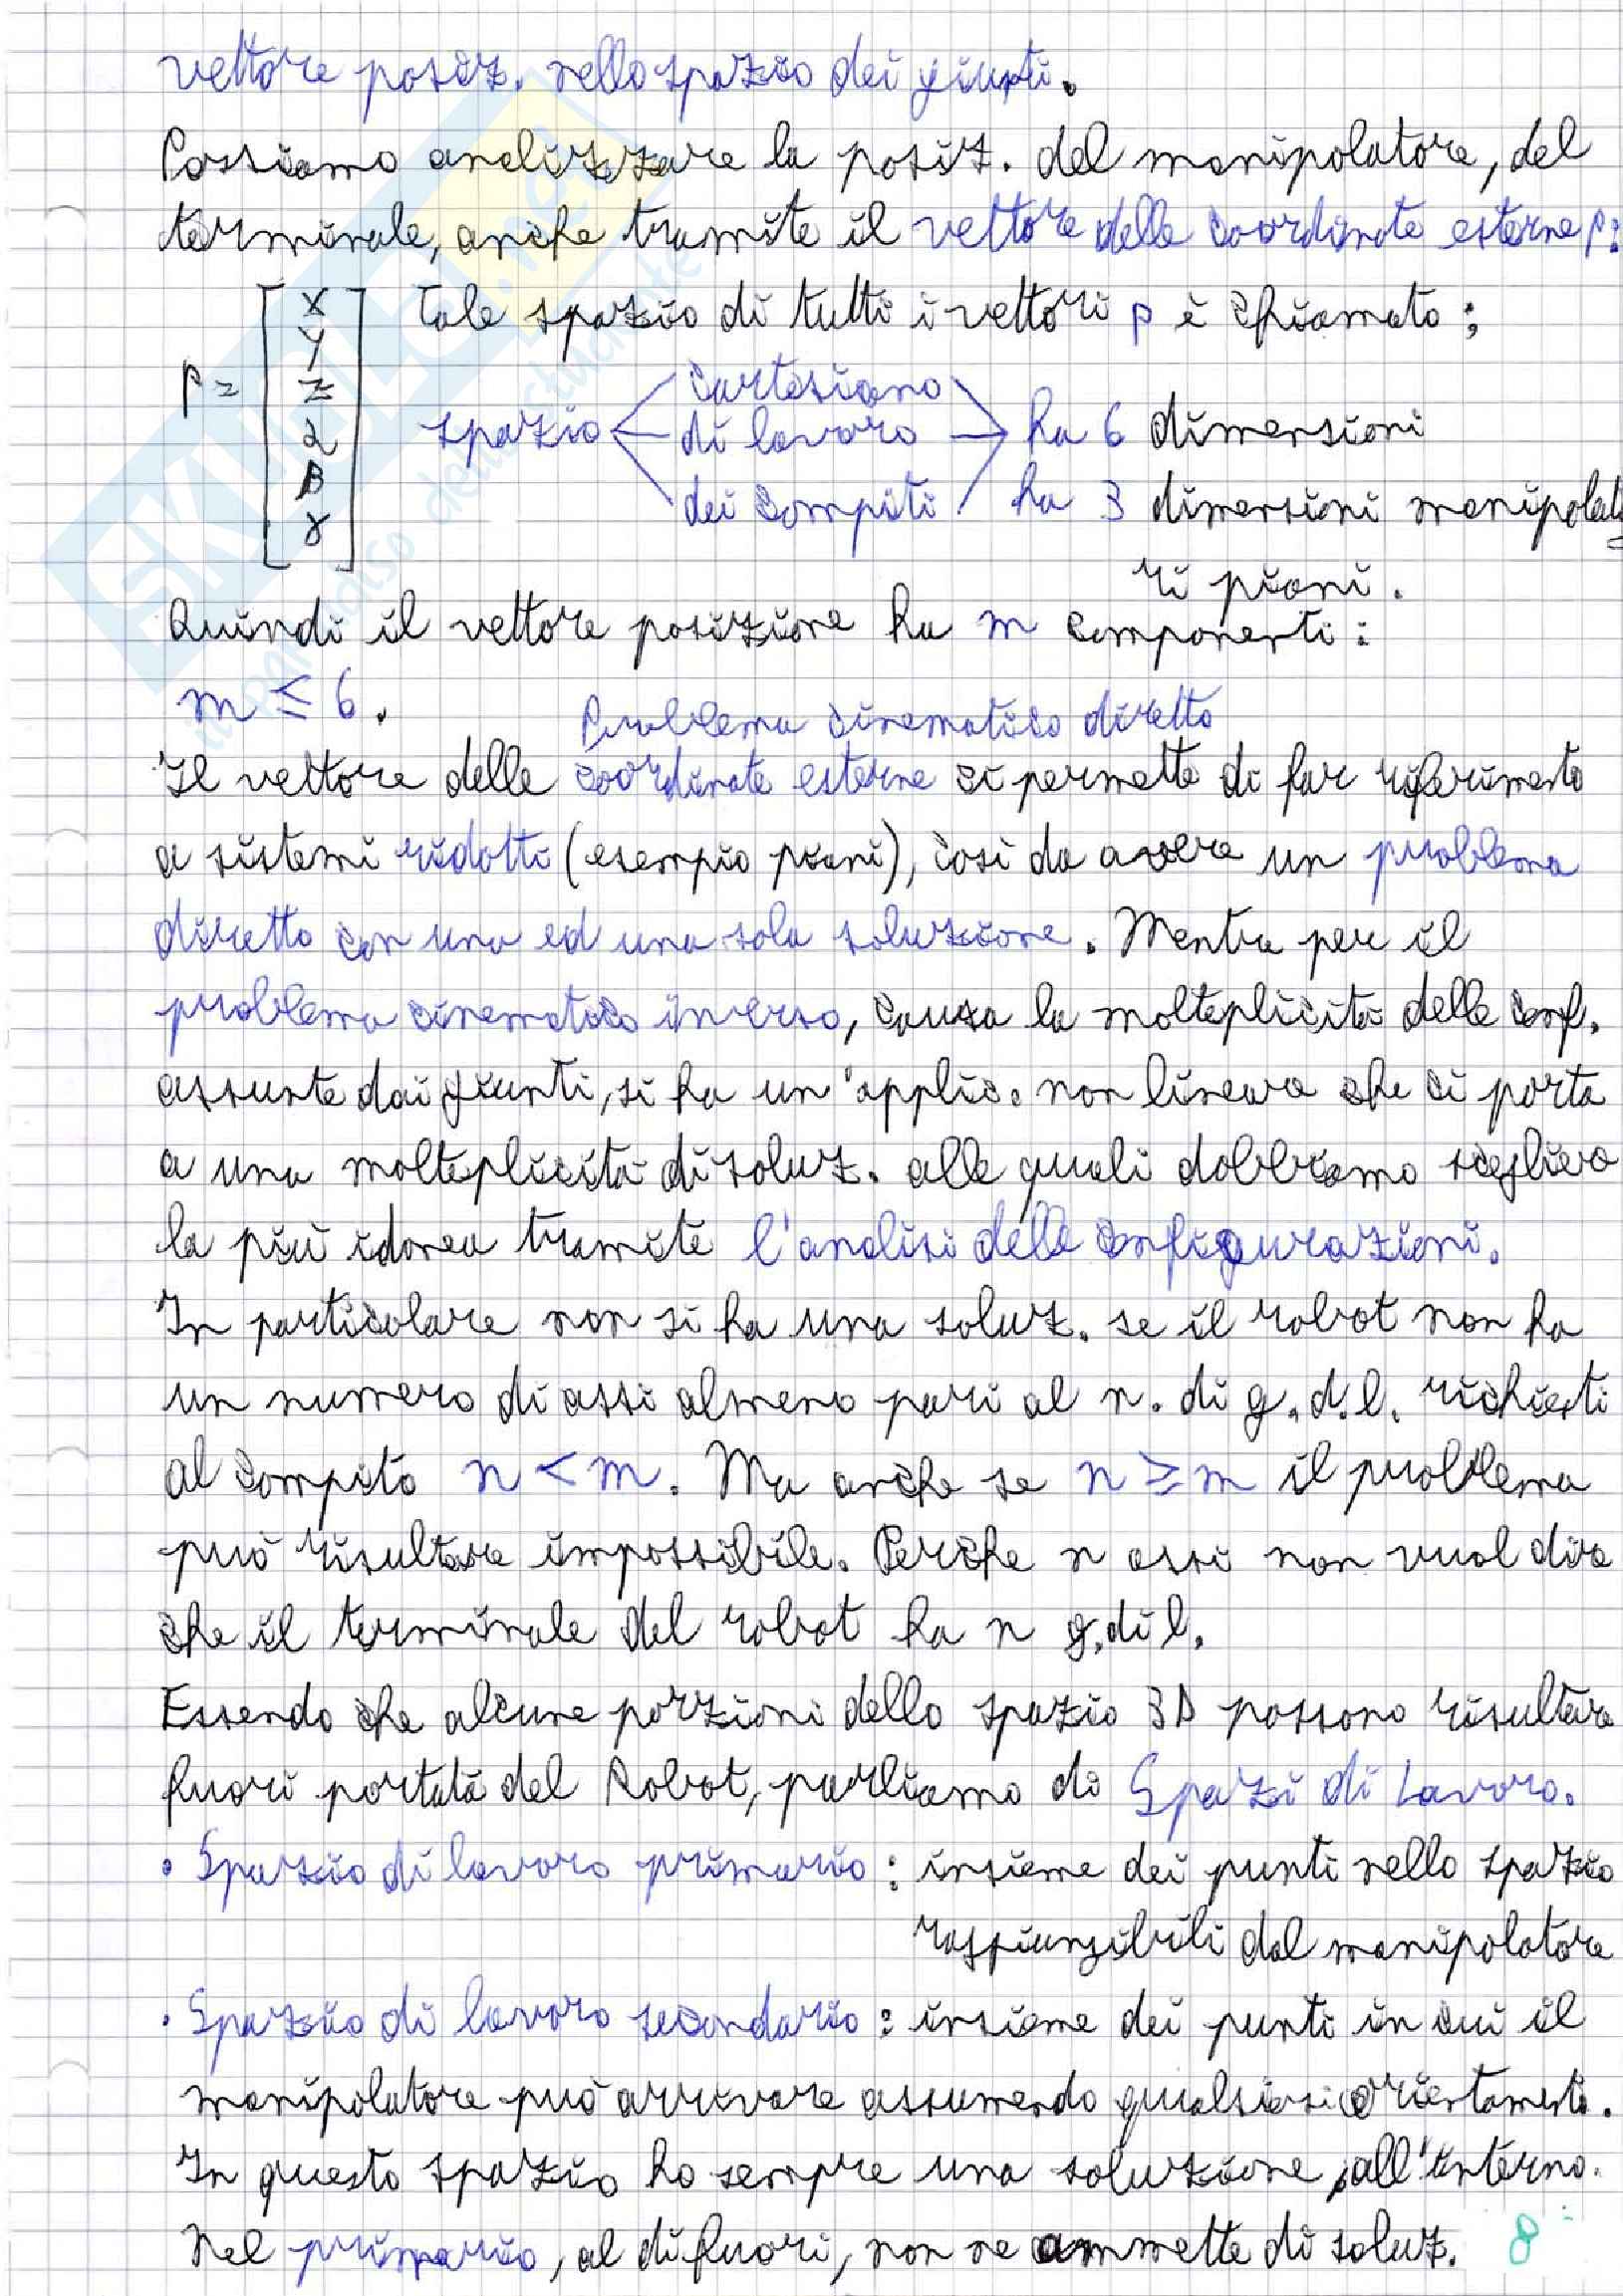 vettore posiz. nello spazio dei giunti.
Possiamo analizzare la posiz. del manipolatore, del
terminale, anche tramite il vettore delle coordinate esterne p:
p = [X Y Z α β γ] Tale spazio di tutti i vettori p è chiamato:
cartesiano
spazio di lavoro ha 6 dimensioni
dei compiti ha 3 dimensioni manipolato
ri piani.
Quindi il vettore posizione ha m componenti:
m ≤ 6.
Problema cinematico diretto
Il vettore delle coordinate esterne ci permette di far riferimento
a sistemi ridotti (esempio piani), così da avere un problema
diretto con una ed una sola soluzione. Mentre per il
problema cinematico inverso, causa la molteplicità delle conf.
assunte dai giunti, si ha un'applic. non lineare che ci porta
a una molteplicità di soluz. alle quali dobbiamo scegliere
la più idonea tramite l'analisi delle configurazioni.
In particolare non si ha una soluz. se il robot non ha
un numero di assi almeno pari al n. di g.d.l. richiesti
al compito n < m. Ma anche se n ≥ m il problema
può risultare impossibile. Perché n assi non vuol dire
che il terminale del robot ha n g.di l.
Essendo che alcune porzioni dello spazio 3D possono risultare
fuori portata del Robot, parliamo di Spazi di Lavoro.
• Spazio di lavoro primario: insieme dei punti nello spazio
raggiungibili dal manipolatore
• Spazio di lavoro secondario: insieme dei punti in cui il
manipolatore può arrivare assumendo qualsiasi orientamento.
In questo spazio ho sempre una soluzione, all'interno.
Nel primario, al di fuori, non ne ammette di soluz. 8
SKUOLA.net
il paradiso dello studente